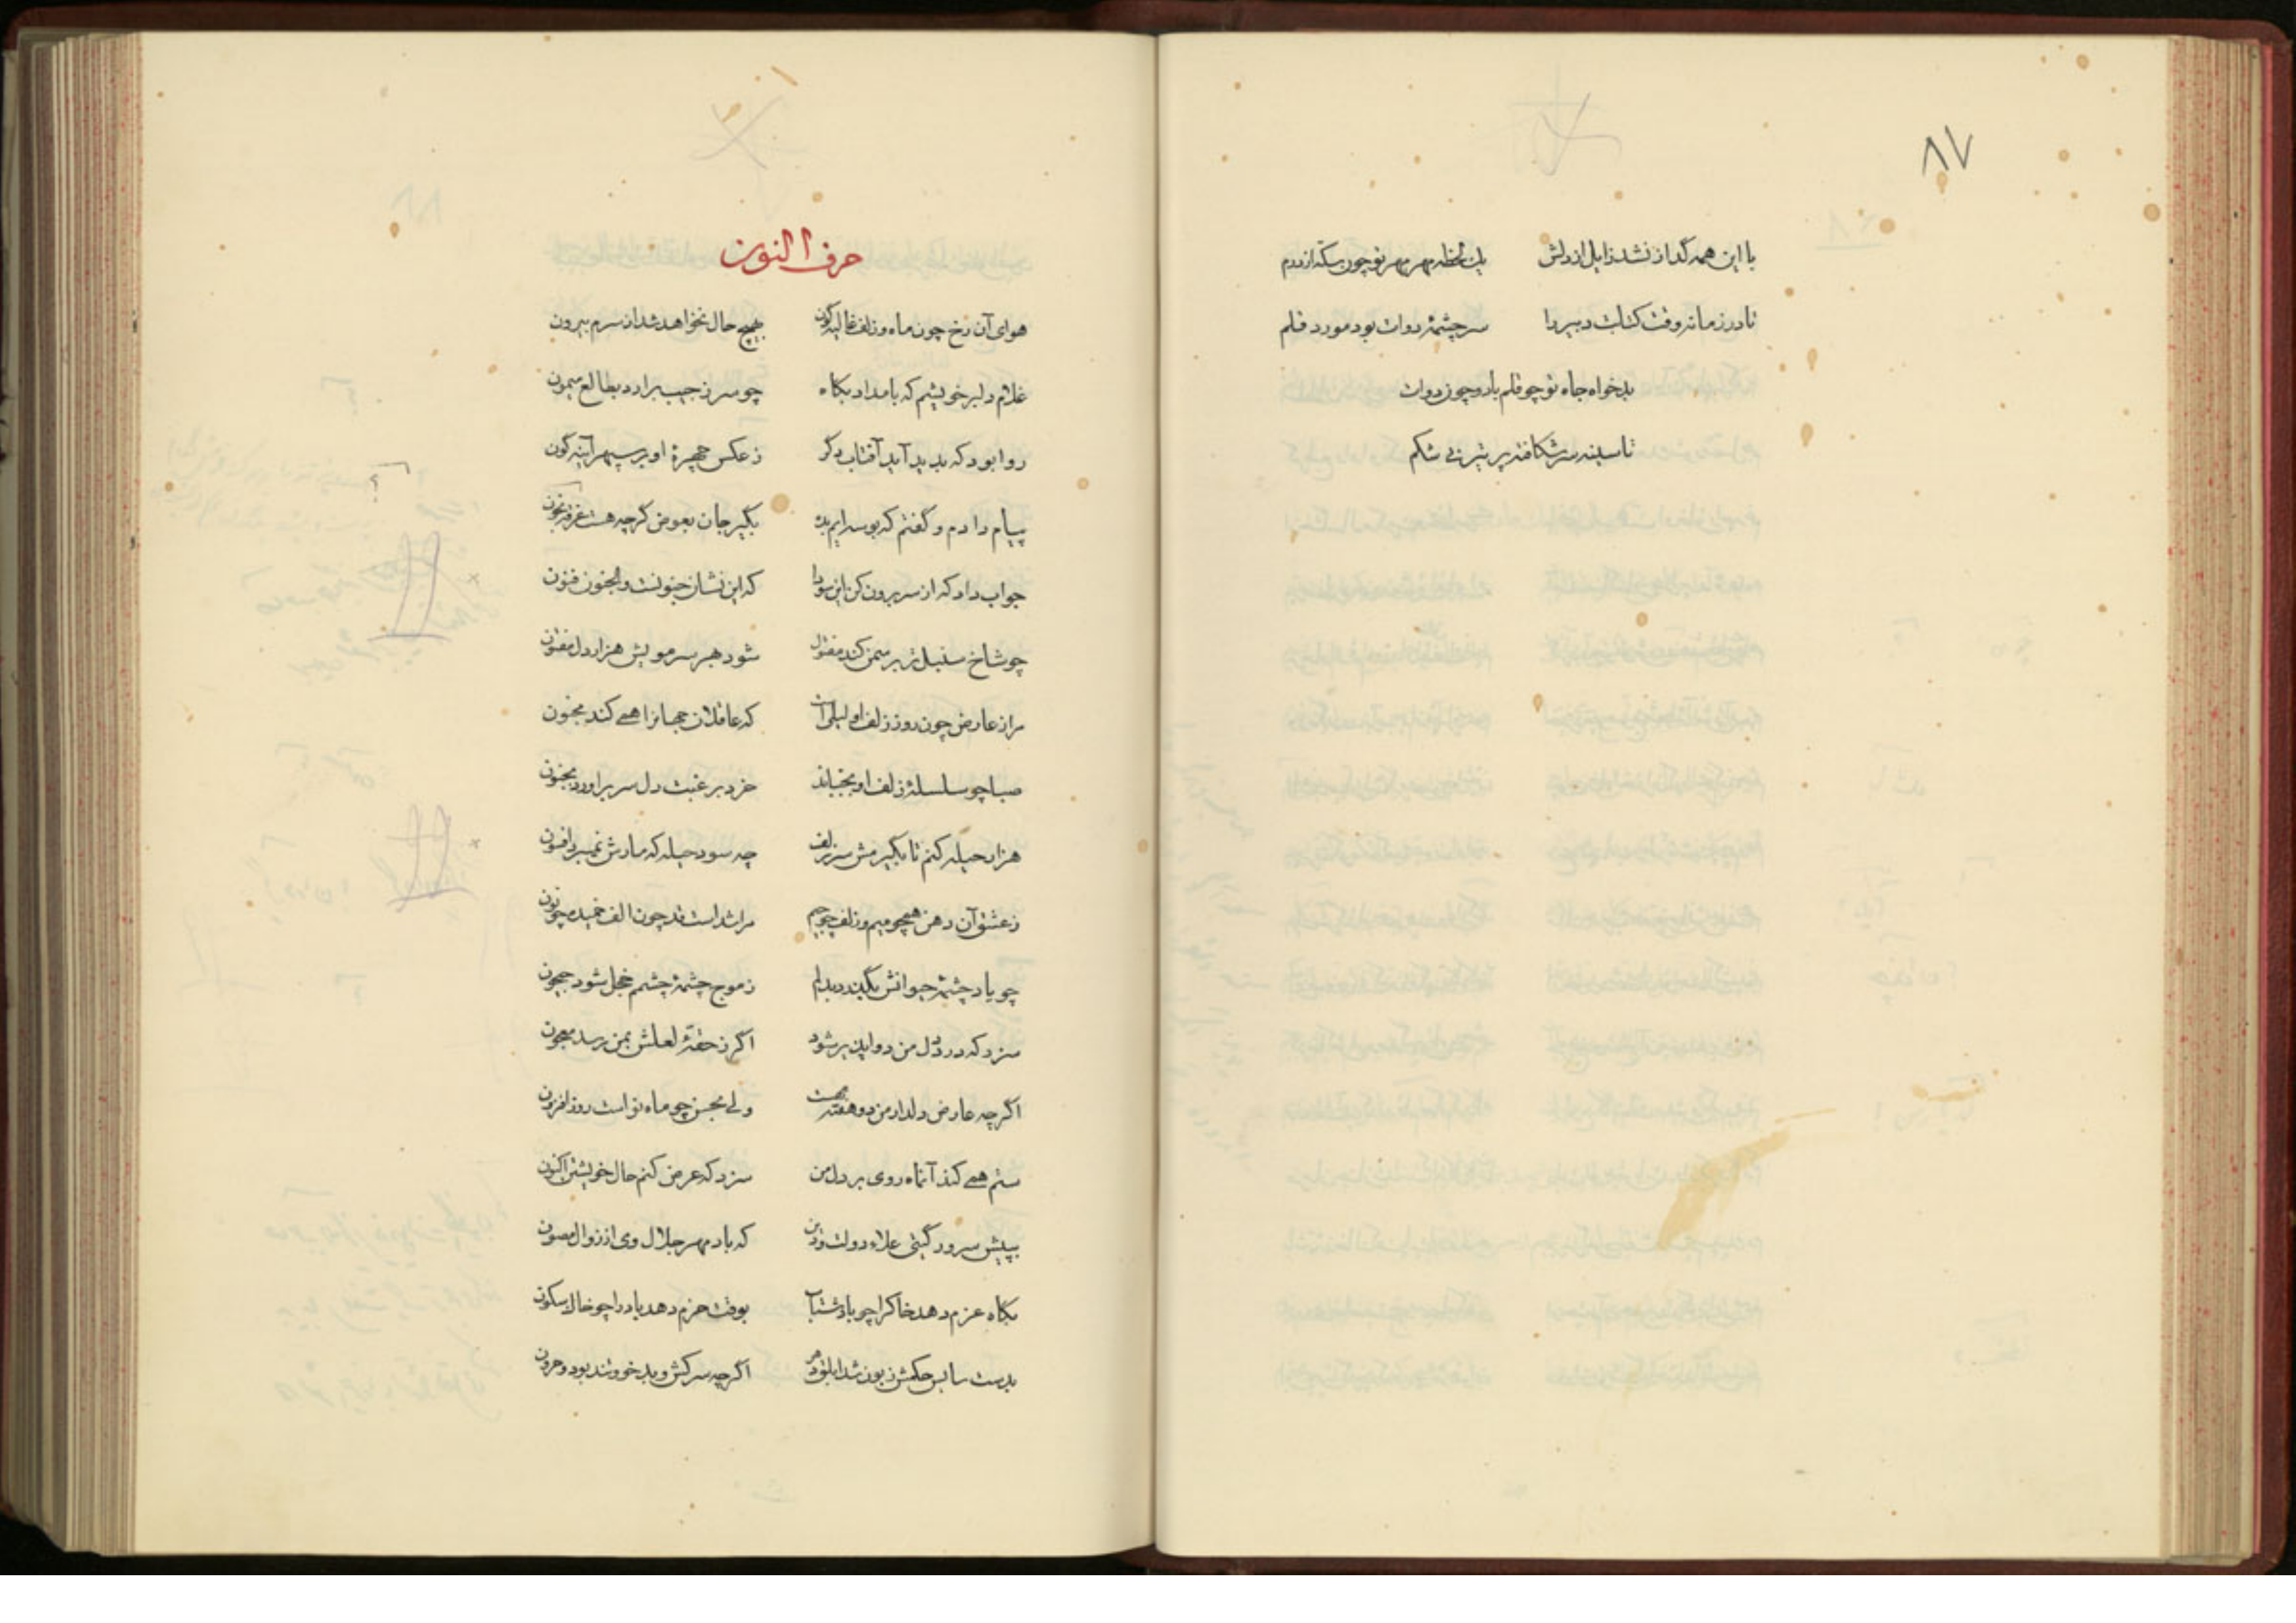 ۸۷
با این همه گداز نشد زایل از دلش یک لحظه مهر مهر تو چون سکه از درم
تا در زمانه وقت کتابت دبیر را سر چشمهٔ دوات بود مورد قلم
بدخواه جاه تو چو قلم باد و چون دوات
تا سینه سر شکافته پر تیر نی شکم
حرف النون
هوای آن رخ چون ماه و زلف غالیه گون بهیچ حال نخواهد شد از سرم بیرون
غلام دلبر خویشم که بامداد بگاه چو سر ز جیب برارد بطالع میمون
روا بود که پدید آید آفتاب دگر ز عکس چهرهٔ او بر سپهر آینه گون
پیام دادم و گفتم که بوسه ایم بده بگیر جان بعوض گرچه هست غرقه بخون
جواب داد که از سر برون کن این سودا که این نشان جنونست والجنون فنون
چو شاخ سنبل تر بر سمن کند مفتول شود بهر سر مویش هزار دل مفتون
مراز عارض چون روز زلف او لیلی است که عاقلان جهانرا همی کند مجنون
صبا چو سلسلهٔ زلف او بجنباند خرد برغبت دل سر براورد بجنون
هزار حیله کنم تا بگیرمش سر زلف چه سود حیله که مارش نمیبرد افسون
ز عشق آن دهن همچو میم و زلف چو جیم مرا شداست قد چون الف خمیده چو نون
چو یاد چشمهٔ حیوانش بگذرد بدلم ز موج چشمهٔ چشمم خجل شود جیحون
سزد که درد دل من دوا پذیر شود اگر ز حقهٔ لعلش بمن رسد معجون
اگرچه عارض دلدار من دو هفته مهست ولی بحسن چو ماه نو است روز افزون
ستم همی کند آنماه روی بر دل من سزد که عرض کنم حال خویشتن اکنون
بپیش سرور گیتی علاء دولت و دین که باد مهر جلال وی از زوال مصون
بگاه عزم دهد خاکرا چو باد شتاب بوقت حزم دهد باد را چو خاک سکون
بدست سایس حکمش زبون شد ابلق دهر اگرچه سرکش و بدخو و تند بود و حرون